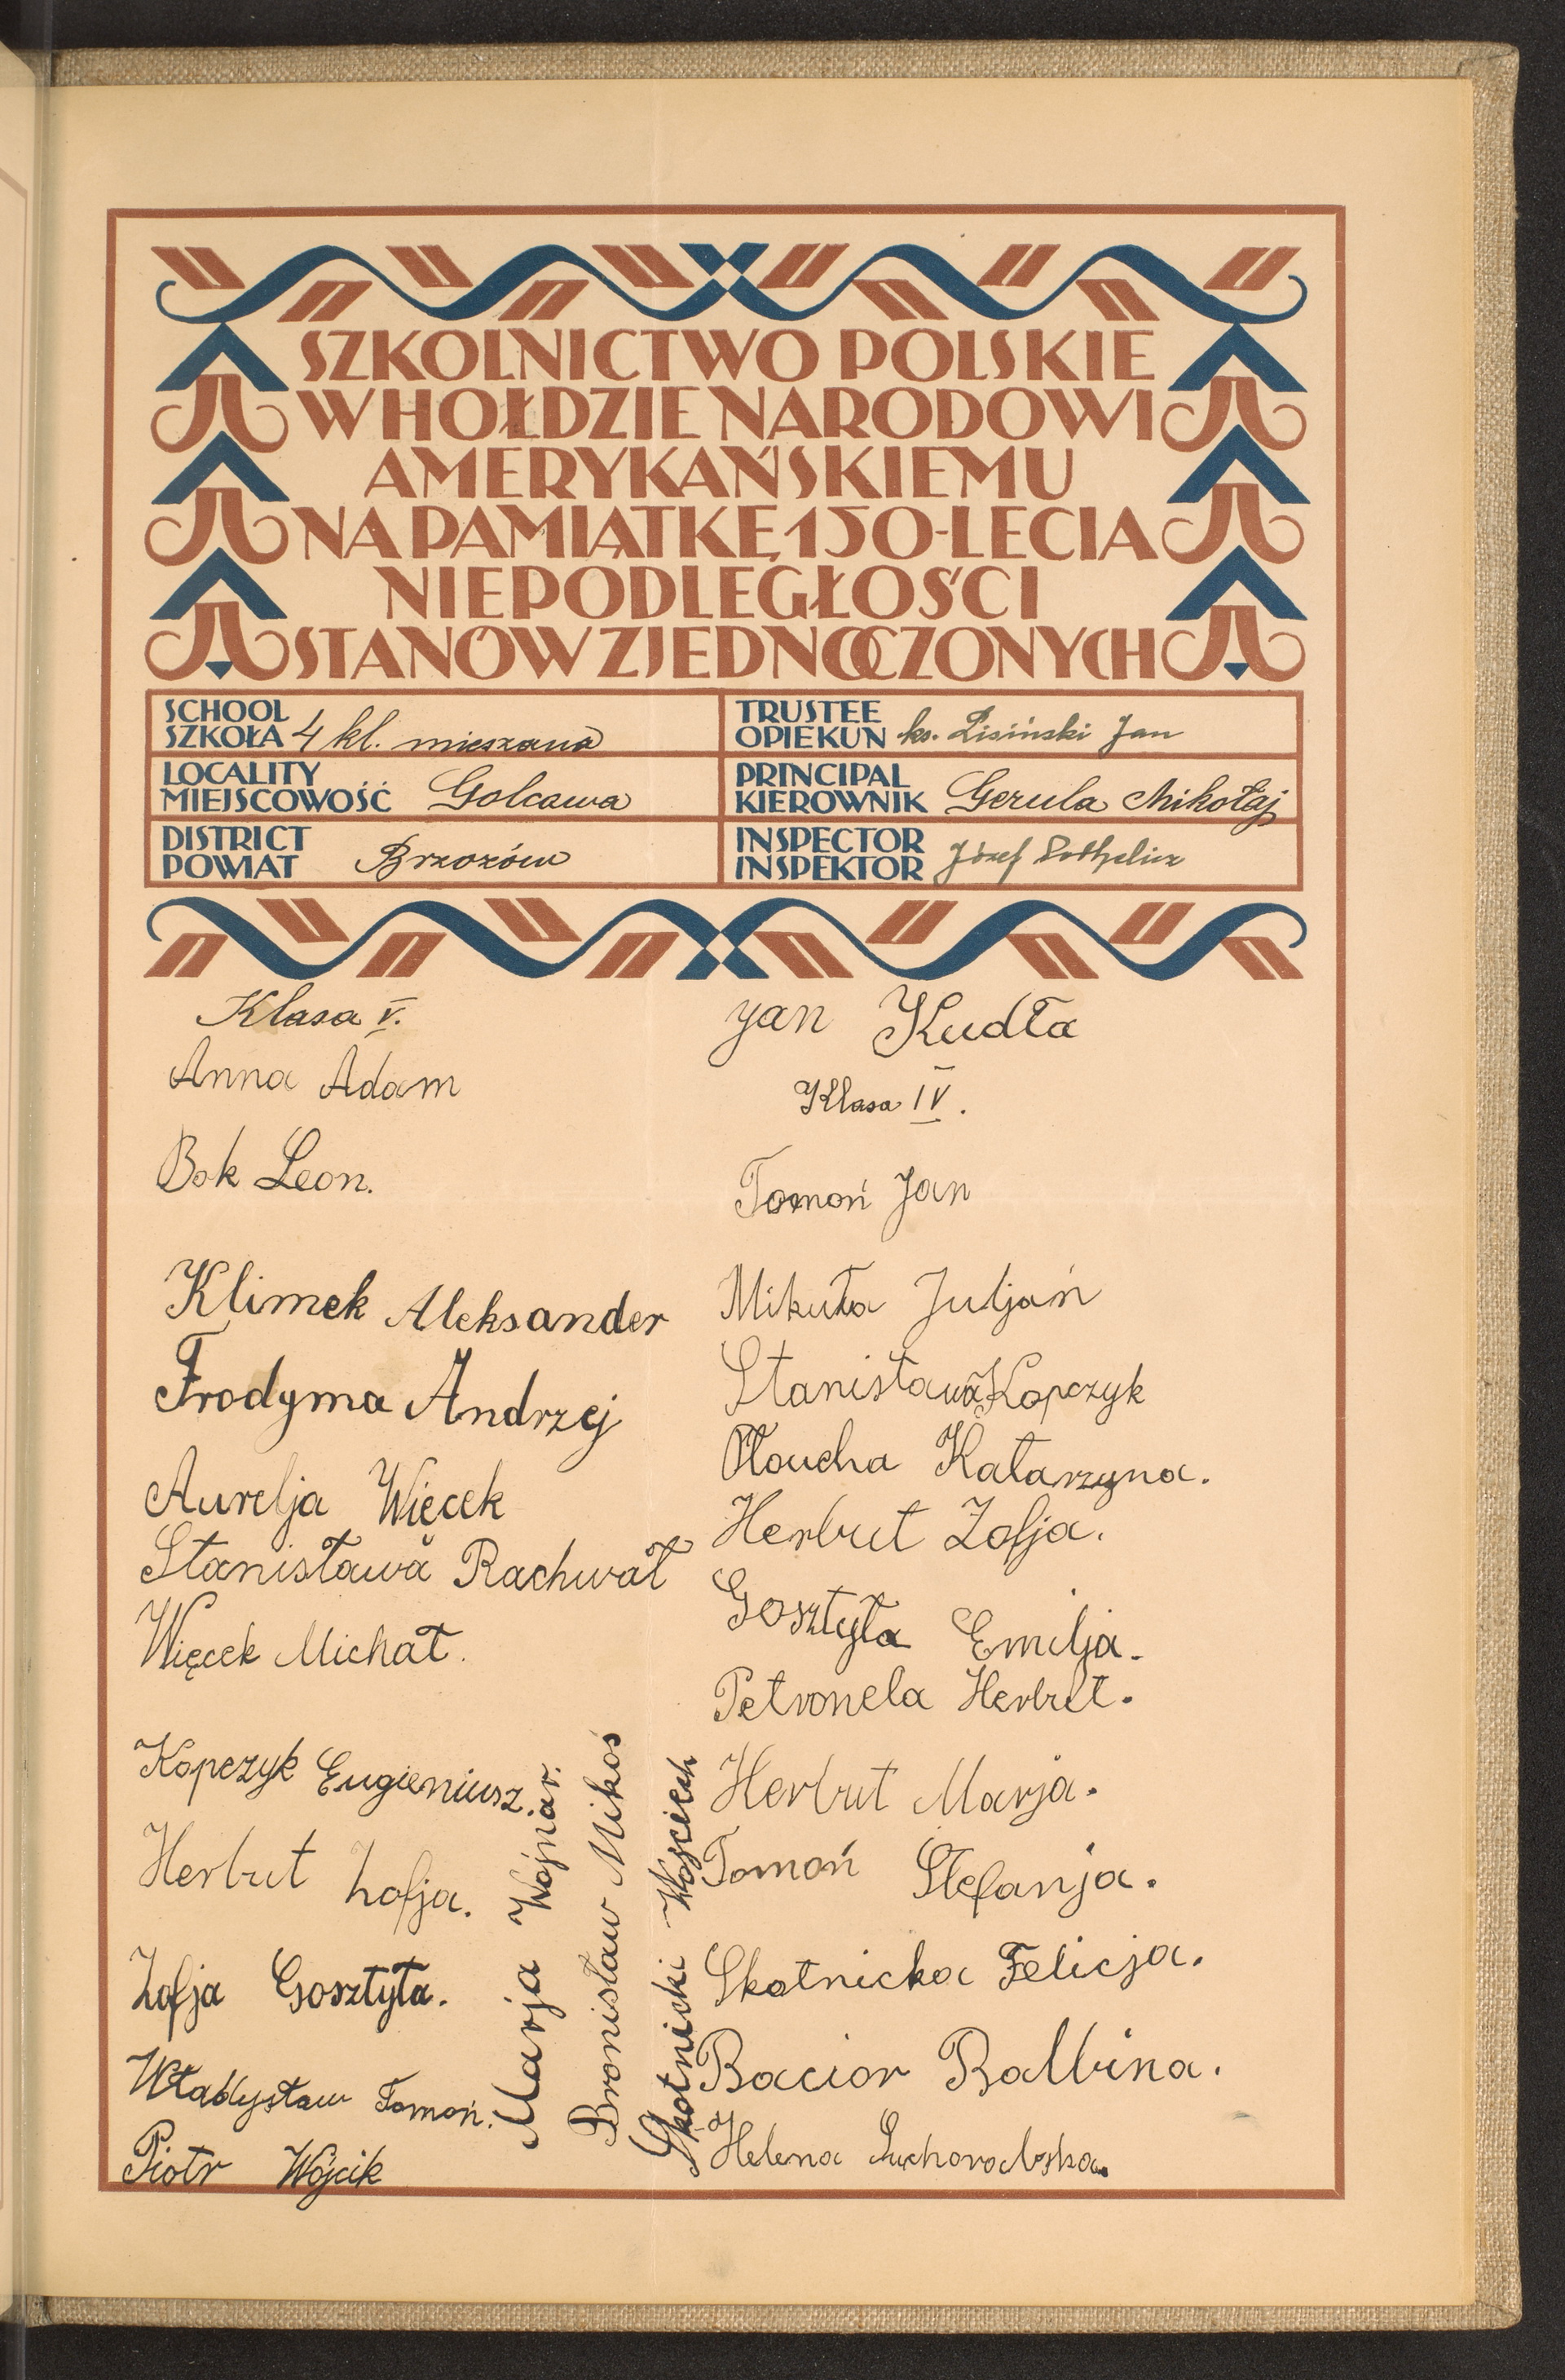 SZKOLNICTWO POLSKIE
W HOŁDZIE NARODOWI
AMERYKAŃSKIEMU
NA PAMIĄTKĘ 150-LECIA
NIEPODLEGŁOŚCI
STANÓW ZJEDNOCZONYCH
SCHOOL
SZKOŁA 4 kl. mieszana
LOCALITY
MIEJSCOWOŚĆ Golcowa
DISTRICT
POWIAT Brzozów
TRUSTEE
OPIEKUN ks. Lisiński Jan
PRINCIPAL
KIEROWNIK Gerula Mikołaj
INSPECTOR
INSPEKTOR Józef
Klasa V.
Anna Adam
Bok Leon.
Klimek Aleksander
Frodyma Andrzej
Aurelja Więcek
Stanisława Rachwał
Więcek Michał.
Kopczyk Eugieniusz.
Herbut Zofja.
Zofja Gosztyła.
Władysław Tomoń.
Piotr Wójcik
Marja Wojnar.
Bronisław Mikoś
Skotnicki Wojciech
Jan Kudła
Klasa IV.
Tomoń Jan
Mikuła Juljan
Stanisława Kopczyk
Katarzyna.
Herbut Zofja.
Gosztyła Emilja.
Petronela Herbut.
Herbut Marja.
Tomoń Stefanja.
Skotnicka Felicja.
Bacior Balbina.
Helena